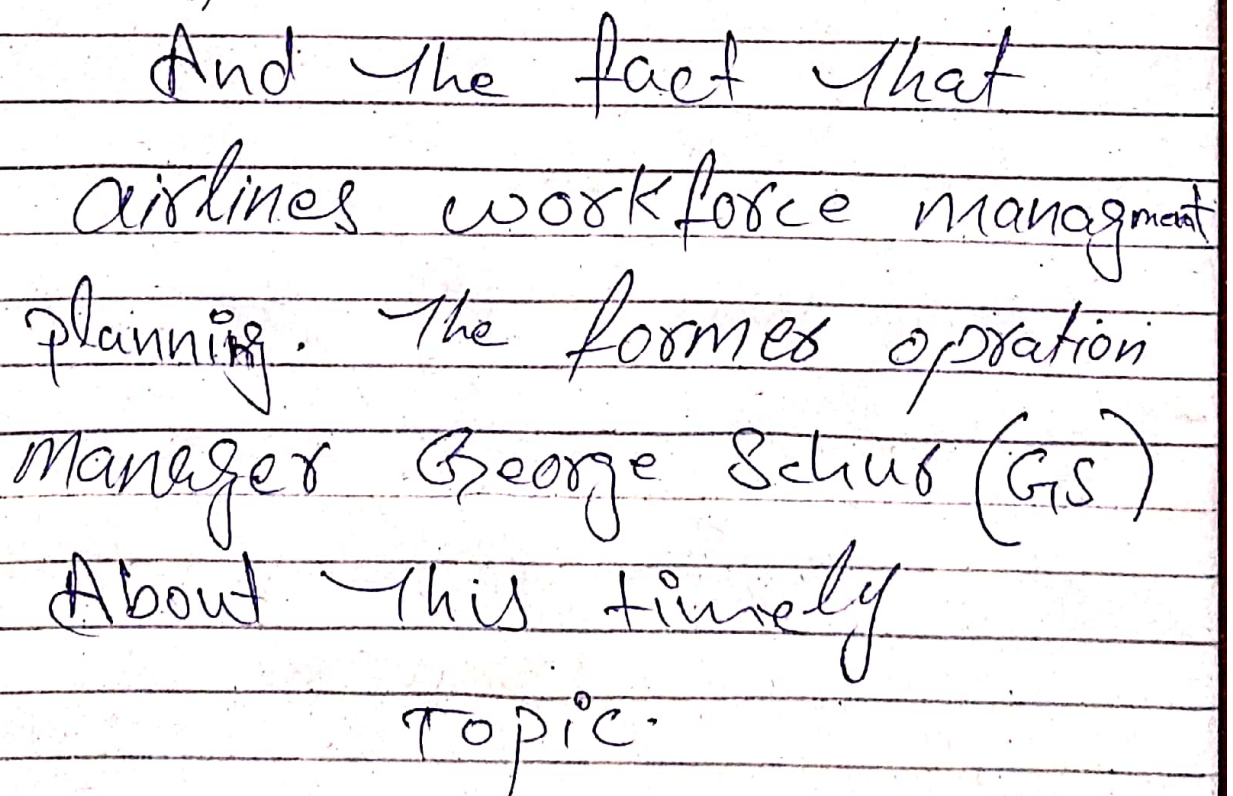 And the fact that
airlines workforce managment
planning. The former opration
Manager George Schur (GS)
About this timely
Topic.